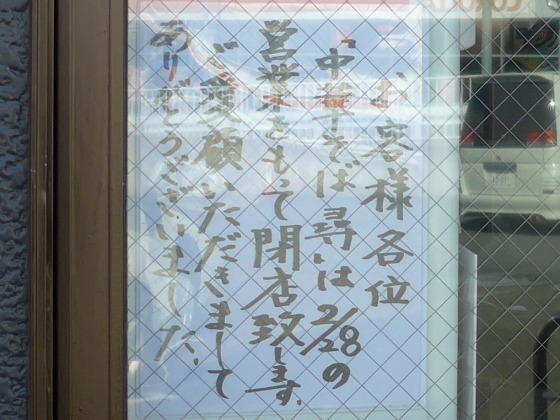 お客様各位
「中華そば 尋」は2/28の
営業をもって閉店致します。
ご愛顧いただきまして
ありがとうございました。